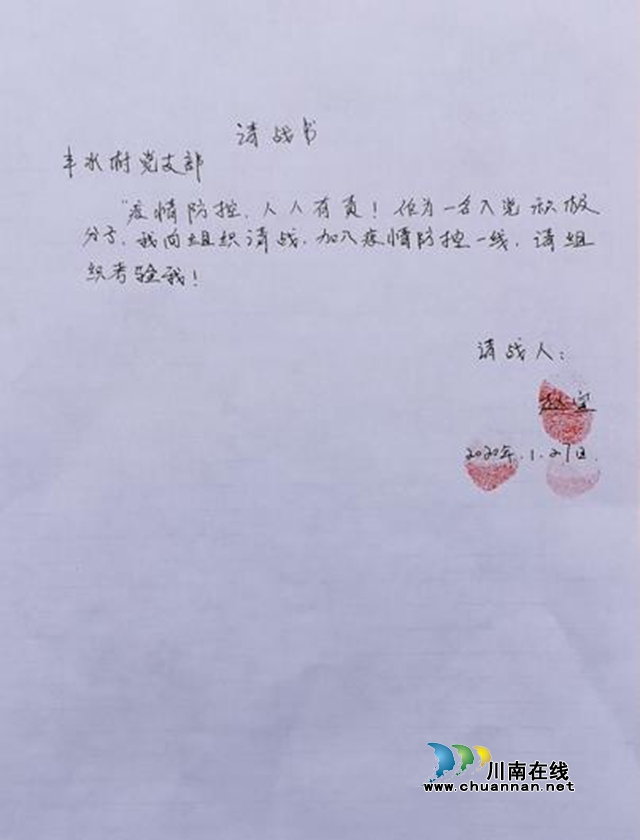 请战书
丰水村党支部
"疫情防控,人人有责!作为一名入党积极
分子,我向组织请战,加入疫情防控一线,请组
织考验我!
请战人:
赵宜
2020年.1.27日.
川南在线
www.chuannan.net